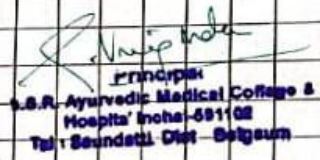 Principal
Ayurvedic Medical College &
Hospital Inchal-591102
Tal: Saundatti Dist Belgaum